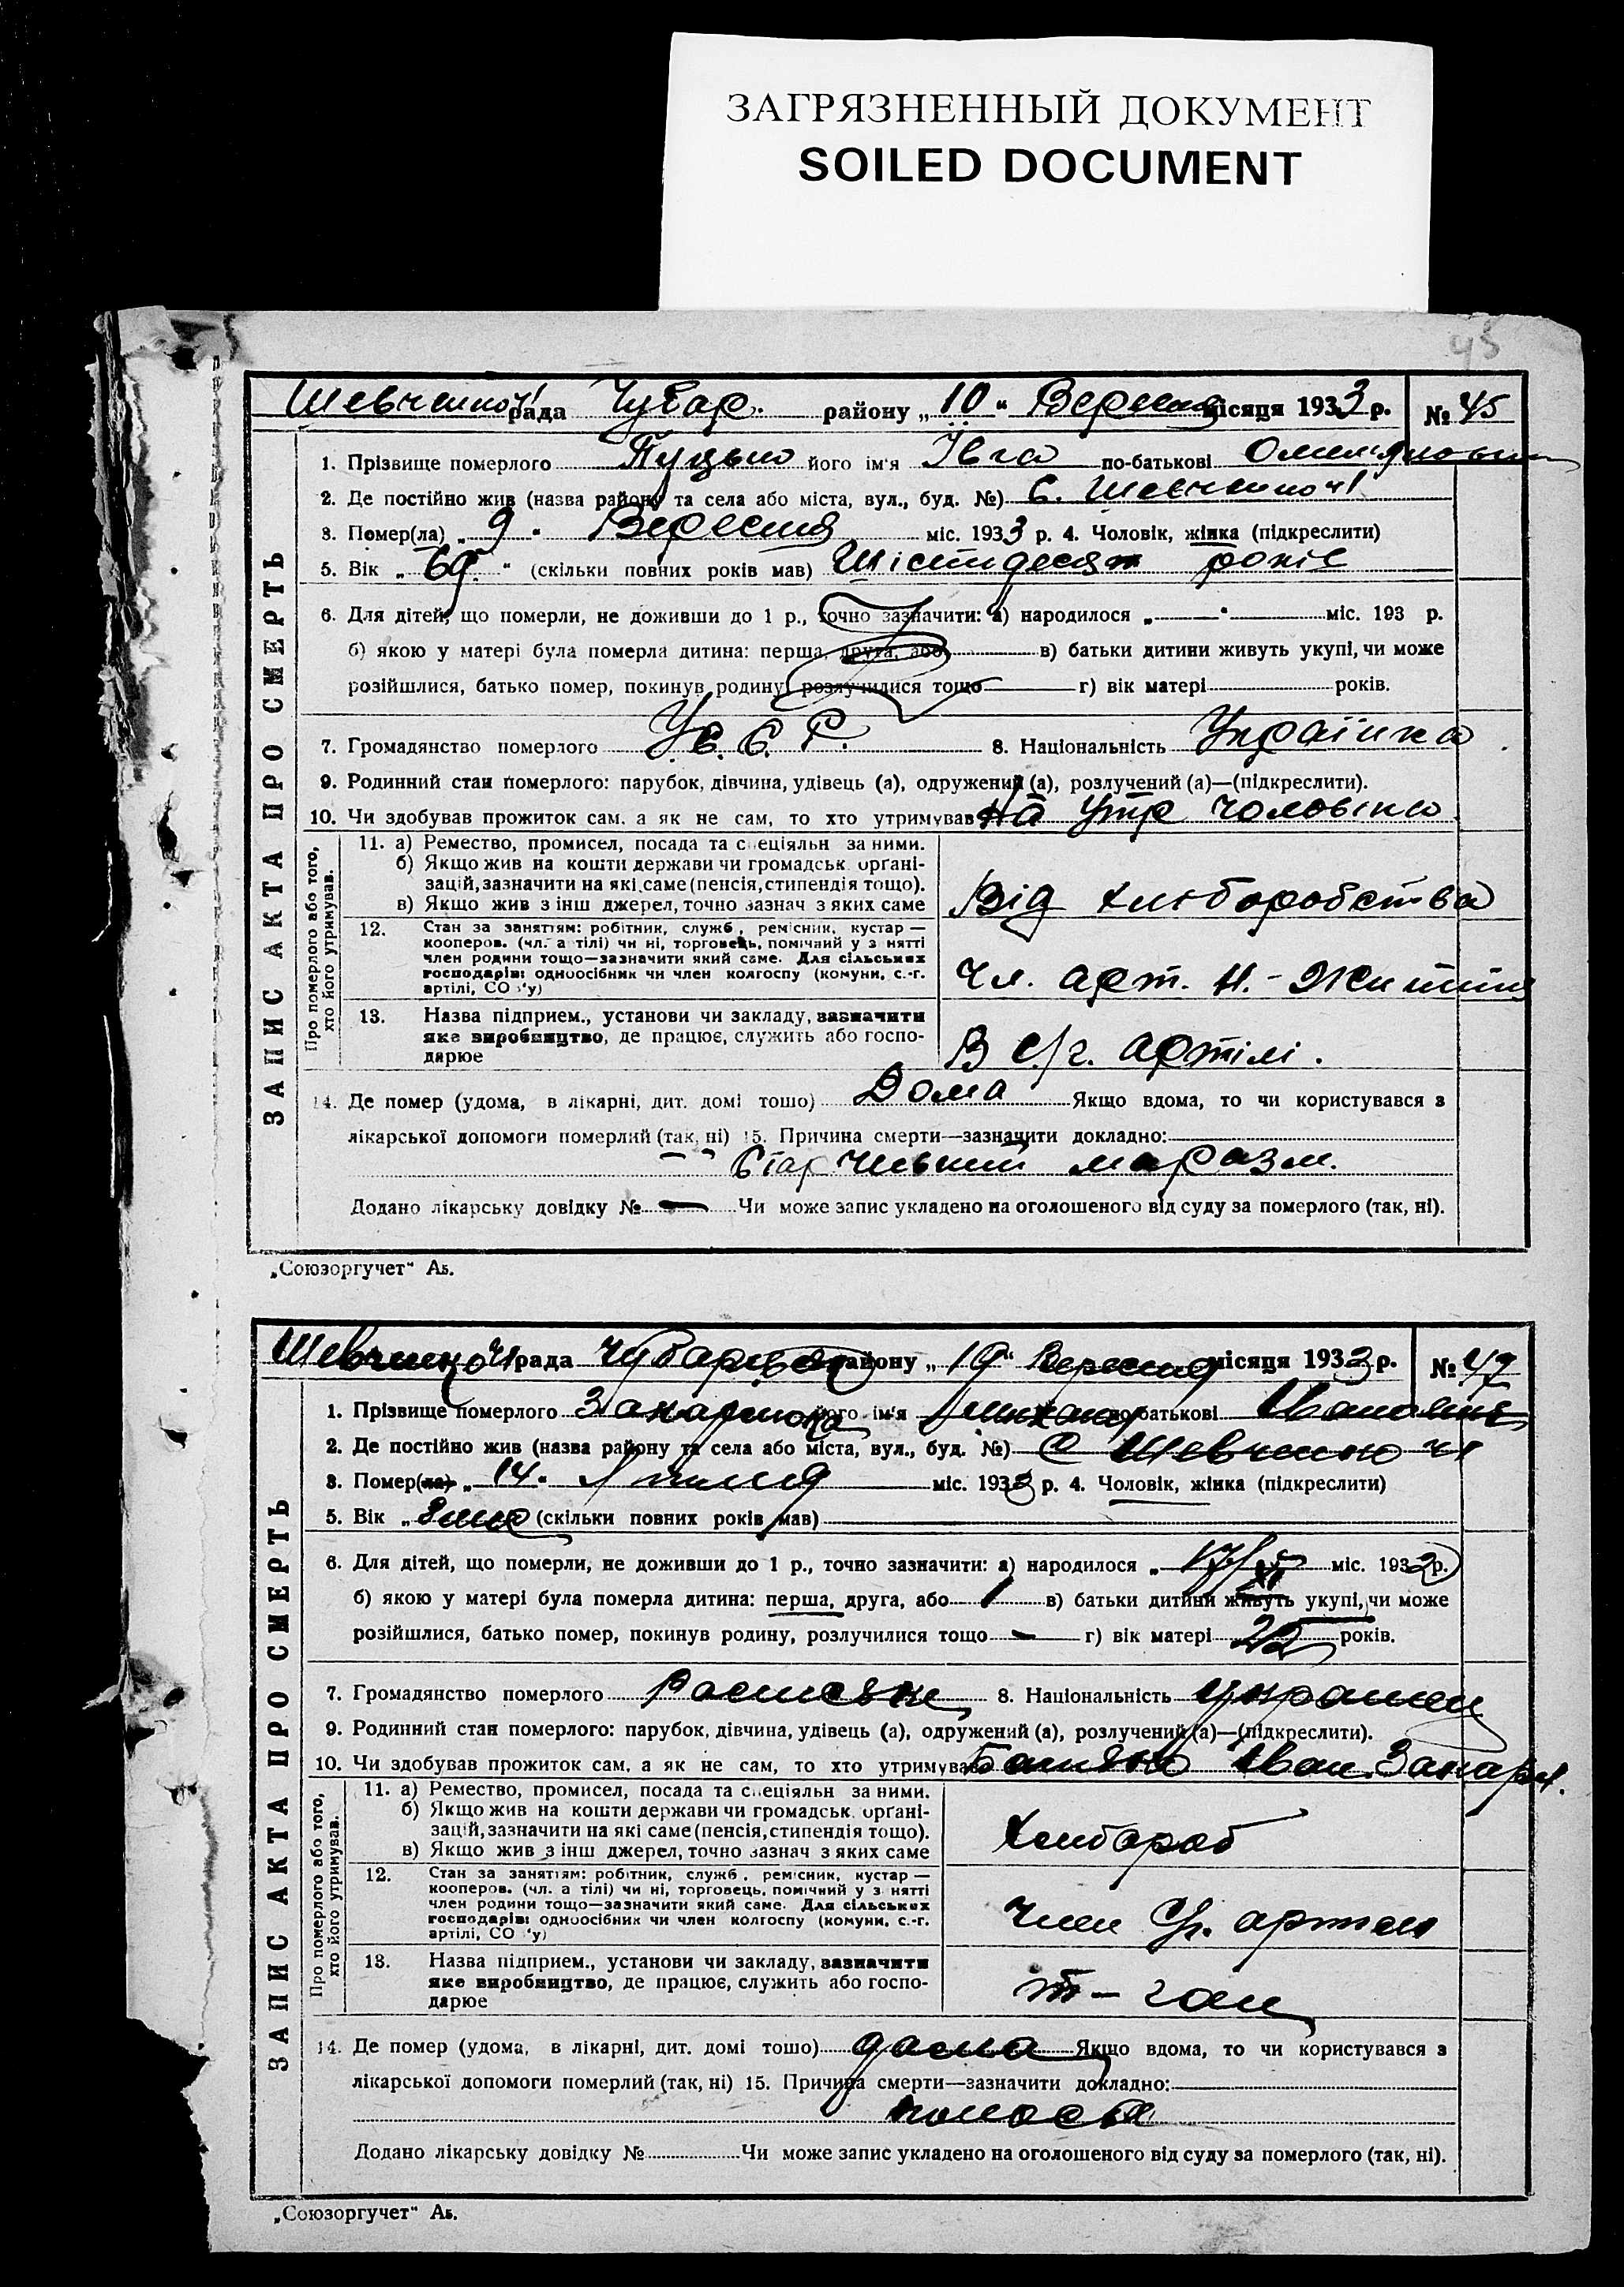 ЗАГРЯЗНЕННЫЙ ДОКУМЕНТ
SOILED DOCUMENT
45
рада Чубар. району „10“ Вересня місяця 1933 р. № 45
ЗАПИС АКТА ПРО СМЕРТЬ
1. Прізвище померлого його ім'я Івга по-батькові
2. Де постійно жив (назва району та села або міста, вул., буд. №) С.
3. Помер(ла) „9“ Вересня міс. 1933 р. 4. Чоловік, жінка (підкреслити)
5. Вік „ “ (скільки повних років мав) Шістидесят років
6. Для дітей, що померли, не доживши до 1 р., точно зазначити: а) народилося „ “ міс. 193 р.
б) якою у матері була померла дитина: перша, друга, або в) батьки дитини живуть укупі, чи може
розійшлися, батько помер, покинув родину, розлучилися тощо г) вік матері років.
7. Громадянство померлого У.С.С.Р. 8. Національність Українка
9. Родинний стан померлого: парубок, дівчина, удівець (а), одружений (а), розлучений (а)—(підкреслити).
10. Чи здобував прожиток сам, а як не сам, то хто утримував На утр чоловіка
Про померлого або того, хто його утримував.
11. а) Ремество, промисел, посада та спеціяльн за ними.
б) Якщо жив на кошти держави чи громадськ. органі-
зацій, зазначити на які саме (пенсія, стипендія тощо).
в) Якщо жив з інш джерел, точно зазнач з яких саме
Від хліборобства
12. Стан за заняттям: робітник, служб, ремісник, кустар —
кооперов. (чл. а тілі) чи ні, торговець, помічний у з нятті
член родини тощо—зазначити який саме. Для сільських
господарів: одноосібник чи член колгоспу (комуни, с.-г.
артілі, СО у)
Чл. арт. Н.-Життя
13. Назва підприєм., установи чи закладу, зазначити
яке виробництво, де працює, служить або госпо-
дарює
В с/г. артілі.
14. Де помер (удома, в лікарні, дит. домі тощо) Дома Якщо вдома, то чи користувався з
лікарської допомоги померлий (так, ні) 15. Причина смерти—зазначити докладно:
маразм.
Додано лікарську довідку № — Чи може запис укладено на оголошеного від суду за померлого (так, ні).
„Союзоргучет“ Аб.
рада району „19“ Вересня місяця 1933 р. № 47
ЗАПИС АКТА ПРО СМЕРТЬ
1. Прізвище померлого його ім'я по-батькові
2. Де постійно жив (назва району та села або міста, вул., буд. №) С
3. Помер(ла) „14“ міс. 1933 р. 4. Чоловік, жінка (підкреслити)
5. Вік „ (скільки повних років мав)
6. Для дітей, що померли, не доживши до 1 р., точно зазначити: а) народилося „ 17/ міс. 1932 р.
б) якою у матері була померла дитина: перша, друга, або в) батьки дитини живуть укупі, чи може
розійшлися, батько помер, покинув родину, розлучилися тощо — г) вік матері років.
7. Громадянство померлого 8. Національність
9. Родинний стан померлого: парубок, дівчина, удівець (а), одружений (а), розлучений (а)—(підкреслити).
10. Чи здобував прожиток сам, а як не сам, то хто утримував Иван
Про померлого або того, хто його утримував.
11. а) Ремество, промисел, посада та спеціяльн за ними.
б) Якщо жив на кошти держави чи громадськ. органі-
зацій, зазначити на які саме (пенсія, стипендія тощо).
в) Якщо жив з інш джерел, точно зазнач з яких саме
Хлибороб
12. Стан за заняттям: робітник, служб, ремісник, кустар —
кооперов. (чл. а тілі) чи ні, торговець, помічний у з нятті
член родини тощо—зазначити який саме. Для сільських
господарів: одноосібник чи член колгоспу (комуни, с.-г.
артілі, СО у)
Член
13. Назва підприєм., установи чи закладу, зазначити
яке виробництво, де працює, служить або госпо-
дарює
14. Де помер (удома, в лікарні, дит. домі тощо) дома Якщо вдома, то чи користувався з
лікарської допомоги померлий (так, ні) 15. Причина смерти—зазначити докладно:
Додано лікарську довідку № Чи може запис укладено на оголошеного від суду за померлого (так, ні).
„Союзоргучет“ Аб.